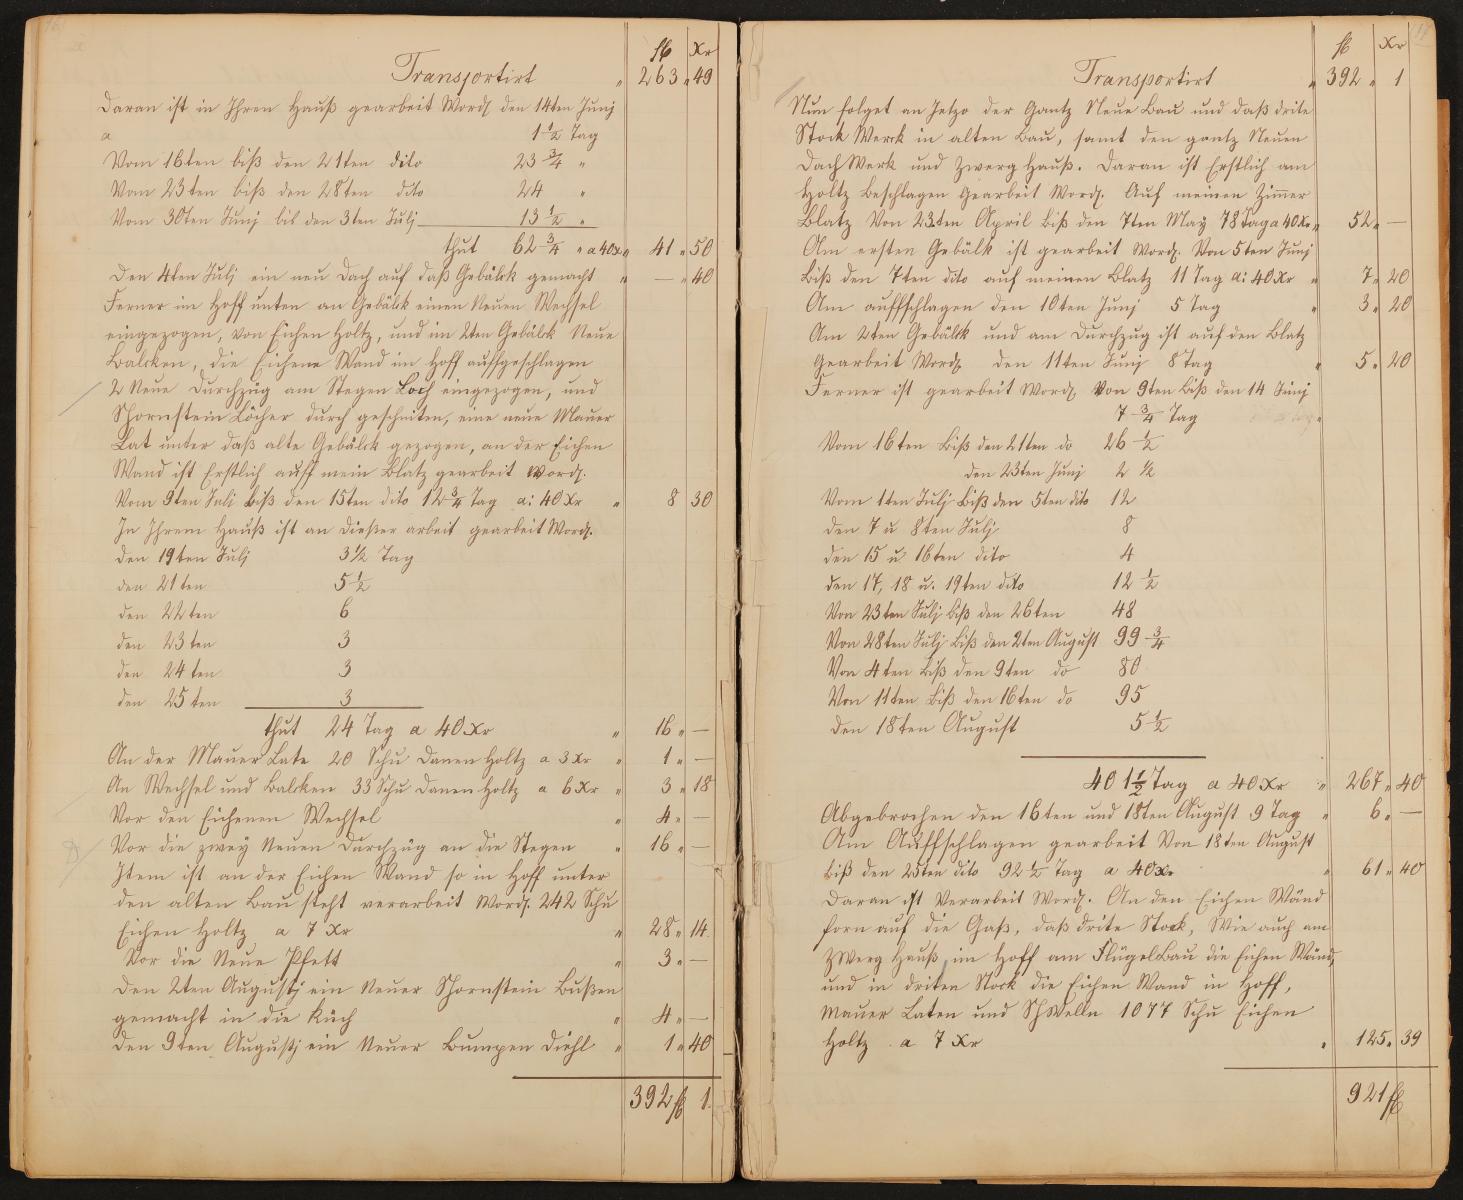 fl Xr
Transportirt " 263 " 49
Daran ist in Ihren Hauß gearbeit Words. den 14ten Junj
a 1 1/2 Tag
Vom 16ten biß den 21ten dito 23 3/4 "
Vom 23ten biß den 28ten dito 24 "
Vom 30ten Junj biß den 3ten Julj 13 1/2 "
thut 62 3/4 " a 40 Xr " 41 " 50
Den 4ten Julj ein neu Dach auf daß Gebälck gemacht " — " 40
Ferner im Hoff unten an Gebälck einen Neuen Wechsel
eingezogen, von Eichen Holtz, und im 2ten Gebälck Neue
Balcken, die Eichene Wand im Hoff auffgeschlagen
2 Neue Durchzüg am Stegen Loch eingezogen, und
Schornstein Löcher durch geschniten, eine neue Mauer
Lat unter daß alte Gebälck gezogen, an der Eichen
Wand ist Erstlich auff mein Blatz gearbeit Words.
Vom 9ten Juli Biß den 15ten dito 12 3/4 Tag a: 40 Xr " 8 30
In Ihrem Hauß ist an dießer arbeit gearbeit Words.
den 19ten Julj 3 1/2 Tag
den 21ten 5 1/2
den 22ten 6
den 23ten 3
den 24ten 3
den 25ten 3
thut 24 Tag a 40 Xr " 16 " —
An der Mauer Late 20 Schu Danen Holtz a 3 Xr " 1 " —
An Wechsel und Balcken 33 Schu Danen Holtz a 6 Xr " 3 " 18
Vor den Eichenen Wechsel " 4 " —
Vor die zwey Neuen Durchzüg an die Stegen " 16 " —
Item ist an der Eichen Wand so in Hoff unter
den alten Bau steht verarbeit Words. 242 Schu
Eichen Holtz a 7 Xr " 28 " 14
Vor die Neue Pfett " 3 " —
Den 2ten Augustj ein Neuer Schornstein Bußen
gemacht in die Küch " 4 " —
Den 9ten Augustj ein Neuer Bumpen Diehl " 1 " 40
392 fl 1
fl Xr
Transportirt " 392 " 1
Nun folget an Jetzo der Gantz Neue Bau und daß drite
Stock Werck in alten Bau, samt den gantz Neuen
Dach Werk und Zwerg Hauß. Daran ist Erstlich am
Holtz Beschlagen Gearbeit Words. Auf meinen Zimmer
Blatz Von 23ten April Biß den 7ten May 78 Tag a 40 Xr " 52 " —
Am ersten Gebälk ist gearbeit Words. Von 5ten Junj
Biß den 7ten dito auf meinen Blatz 11 Tag a: 40 Xr " 7 " 20
Am auffschlagen den 10ten Junj 5 Tag " 3 " 20
Am 2ten Gebälk und am Durchzug ist auf den Blatz
Gearbeit Words. den 11ten Junj 8 Tag " 5 " 20
Ferner ist gearbeit Words. Von 9ten Biß den 14 Junj
7 3/4 Tag "
Vom 16ten Biß den 21ten do 26 1/2
den 23ten Junj 2 1/2
Vom 1ten Julj Biß den 5ten dito 12
den 7 u 8ten Julj 8
den 15 u 16ten dito 4
den 17, 18 u. 19ten dito 12 1/2
Von 23ten Julj Biß den 26ten 48
Von 28ten Julj Biß den 2ten August 99 3/4
Von 4ten Biß den 9ten do 80
Von 11ten Biß den 16ten do 95
den 18ten August 5 1/2
401 1/2 Tag a 40 Xr " 267 " 40
Abgebrochen den 16ten und 18ten August 9 Tag " 6 " —
Am Auffschlagen gearbeit Von 18ten August
Biß den 25ten dito 92 1/2 Tag a 40 Xr " 61 " 40
Daran ist Verarbeit Words. An den Eichen Wänd
forn auf die Gaß, daß drite Stock, Wie auch am
Zwerg Hauß, im Hoff am Flügel Bau die Eichen Wänd,
und in driten Stock die Eichen Wand in Hoff,
Mauer Laten und Schwelln 1077 Schu Eichen
Holtz a 7 Xr " 125 " 39
921 fl